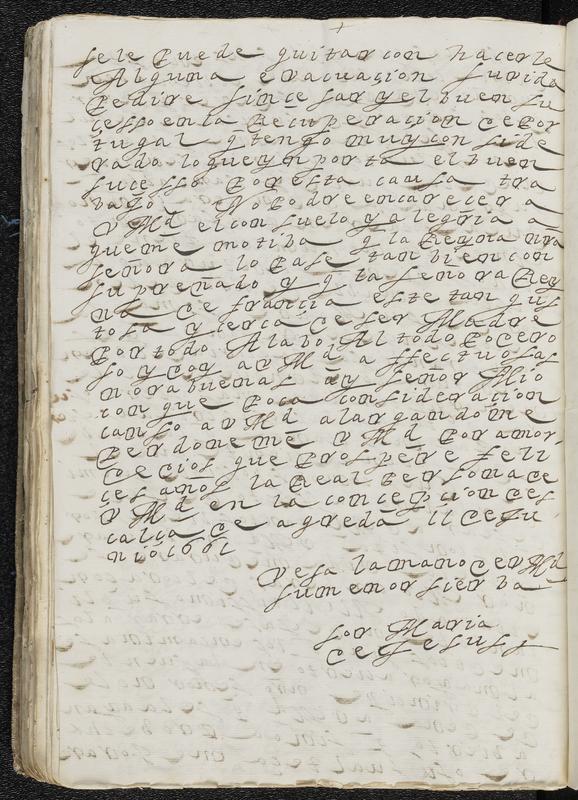 +
se le puede quitar con hacerle
Alguna evacuacion lucida
Pedire sin cesar y el buen su
cesso en la Recuperacion de Por
tugal q tengo muy con side
rado lo que ynporta el buen
sucesso por esta causa tra
bajo No Podre encarecer a
V Md el con suelo y alegria a
que me motiba q la Reyna nra
señora lo Pase tan bien con
su preñado y q la señora Rey
na de francia este tan gus
tosa y cerca de ser Madre
Por todo Alabo Al todo Podero
so y doy a V Md a ffectuosas
norabuenas ay señor Mio
con que Poca consideracion
canso a V Md alargandome
Perdoneme V Md Por amor
de Dios que Prospere feli
ces años la Real Persona de
V Md en la concepcion des
calça de agreda 11 de Ju
nio 1661
Vesa la mano de V Md
su menor sierba
sor Maria
de Jesus